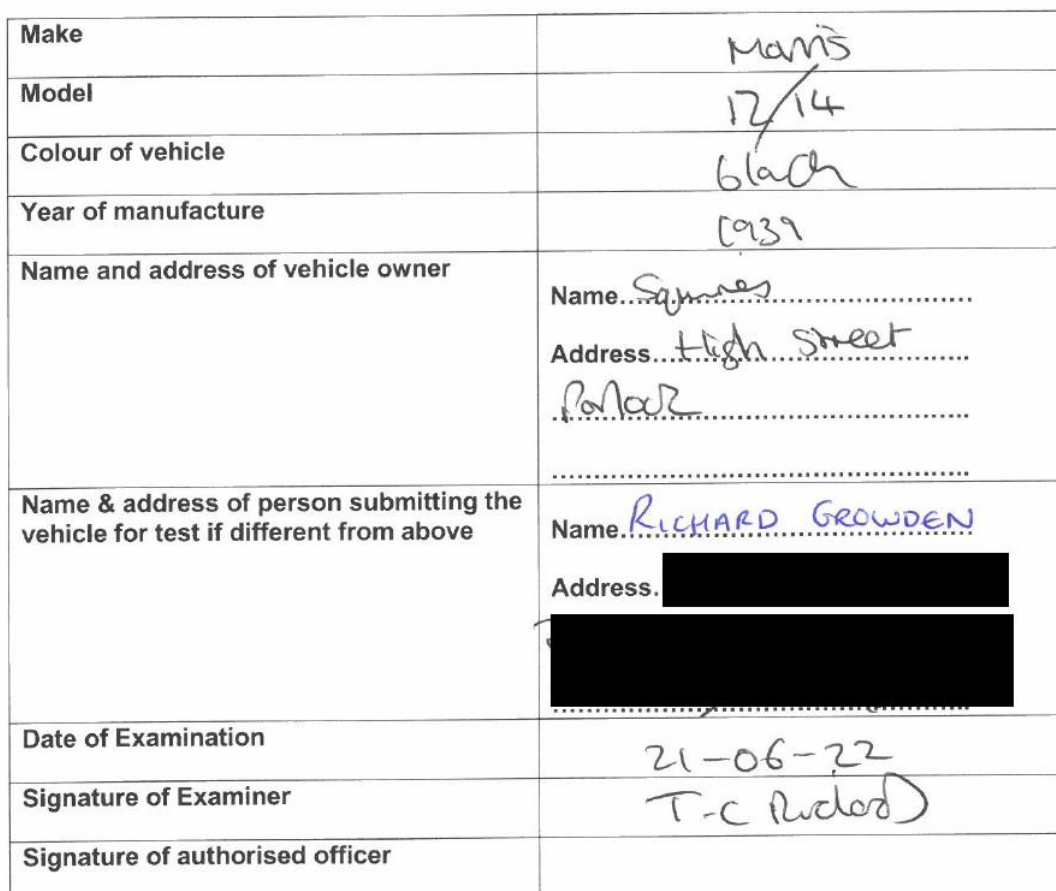 Make Morris
Model 12/14
Colour of vehicle black
Year of manufacture 1939
Name and address of vehicle owner
Name Squires
Address High Street
Porlock
Name & address of person submitting the
vehicle for test if different from above
Name RICHARD GROWDEN
Address.
Date of Examination 21-06-22
Signature of Examiner T-C
Signature of authorised officer